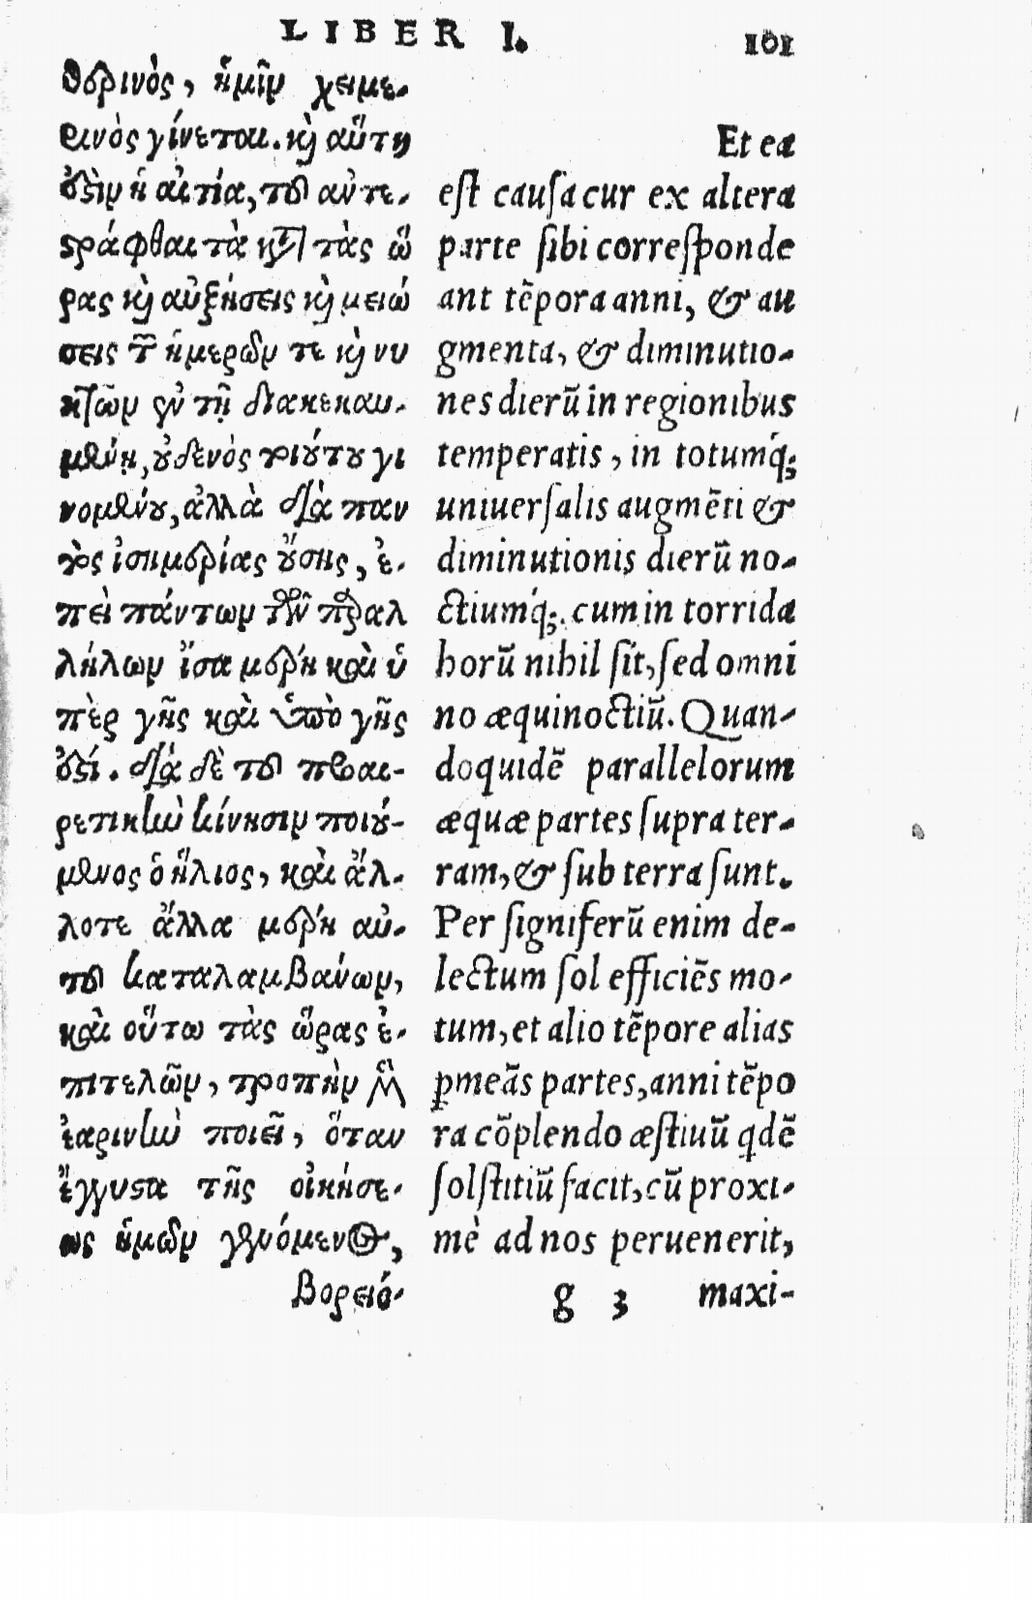 LIBER I. 101
θερινὸς, ἡμῖν χειμε-
ρινὸς γίνεται. καὶ αὕτη
ἐστὶν ἡ αἰτία, τοῦ αὐτε-
στράφθαι τὰ κατὰ τὰς ὥ
ρας καὶ αὐξήσεις καὶ μειώ
σεις τῶν ἡμερῶν τε καὶ νυ
κτῶν ἐν τῇ διακεκαυ-
μένῃ, οὐδενὸς τοιούτου γι
νομένου, ἀλλὰ διὰ παν
τὸς ἰσημερίας οὔσης, ἐ-
πεὶ πάντων τῶν παραλ
λήλων ἴσα μέρη καὶ ὑ
πὲρ γῆς καὶ ὑπὸ γῆς
ἐστί. διὰ δὲ τοῦ προαι-
ρετικὴν κίνησιν ποιού-
μενος ὁ ἥλιος, καὶ ἄλ-
λοτε ἄλλα μέρη αὐ-
τοῦ καταλαμβάνων,
καὶ οὕτω τὰς ὥρας ἐ-
πιτελῶν, τροπὴν μὲν
ἐαρινὴν ποιεῖ, ὅταν
ἔγγυστα τῆς οἰκήσε-
ως ἡμῶν γενόμενος,
βορειό-
Et ea
est causa cur ex altera
parte sibi corresponde
ant tẽpora anni, & au
gmenta, & diminutio-
nes dierũ in regionibus
temperatis, in totumq́;
uniuersalis augmẽti &
diminutionis dierũ no-
ctiumq́;. cum in torrida
horũ nihil sit, sed omni
no æquinoctiũ. Quan-
doquidẽ parallelorum
æquæ partes supra ter-
ram, & sub terra sunt.
Per signiferũ enim de-
lectum sol efficiẽs mo-
tum, et alio tẽpore alias
ꝑmeãs partes, anni tẽpo
ra cõplendo æstiuũ qdẽ
solstitiũ facit, cũ proxi-
mè ad nos peruenerit,
g 3 maxi-